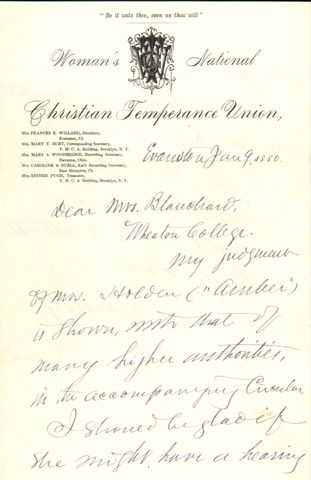 " Be it unto thee, even as thou wilt"
Woman's National
Christian Temperance Union,
Miss FRANCES E. WILLARD, President,
Evanston, Ill.
Mrs. MARY T. BURT, Corresponding Secretary,
Y. M. C. A. Building, Brooklyn, N. Y.
Mrs. MARY A. WOODBRIDGE, Recording Secretary,
Ravenna, Ohio.
Mrs. CAROLINE B. BUELL, Ass't Recording Secretary,
East Hampton, Ct.
Miss ESTHER PUGH, Treasurer,
Y. M. C. A. Building, Brooklyn, N. Y.
Evanston Jan 9 1880.
Dear Mrs. Blanchard,
Wheaton College.
My judgment
of Mrs. Holden ("Amber")
is shown, with that of
many higher authorities,
in the accompanying Circular
I should be glad if
she might have a hearing